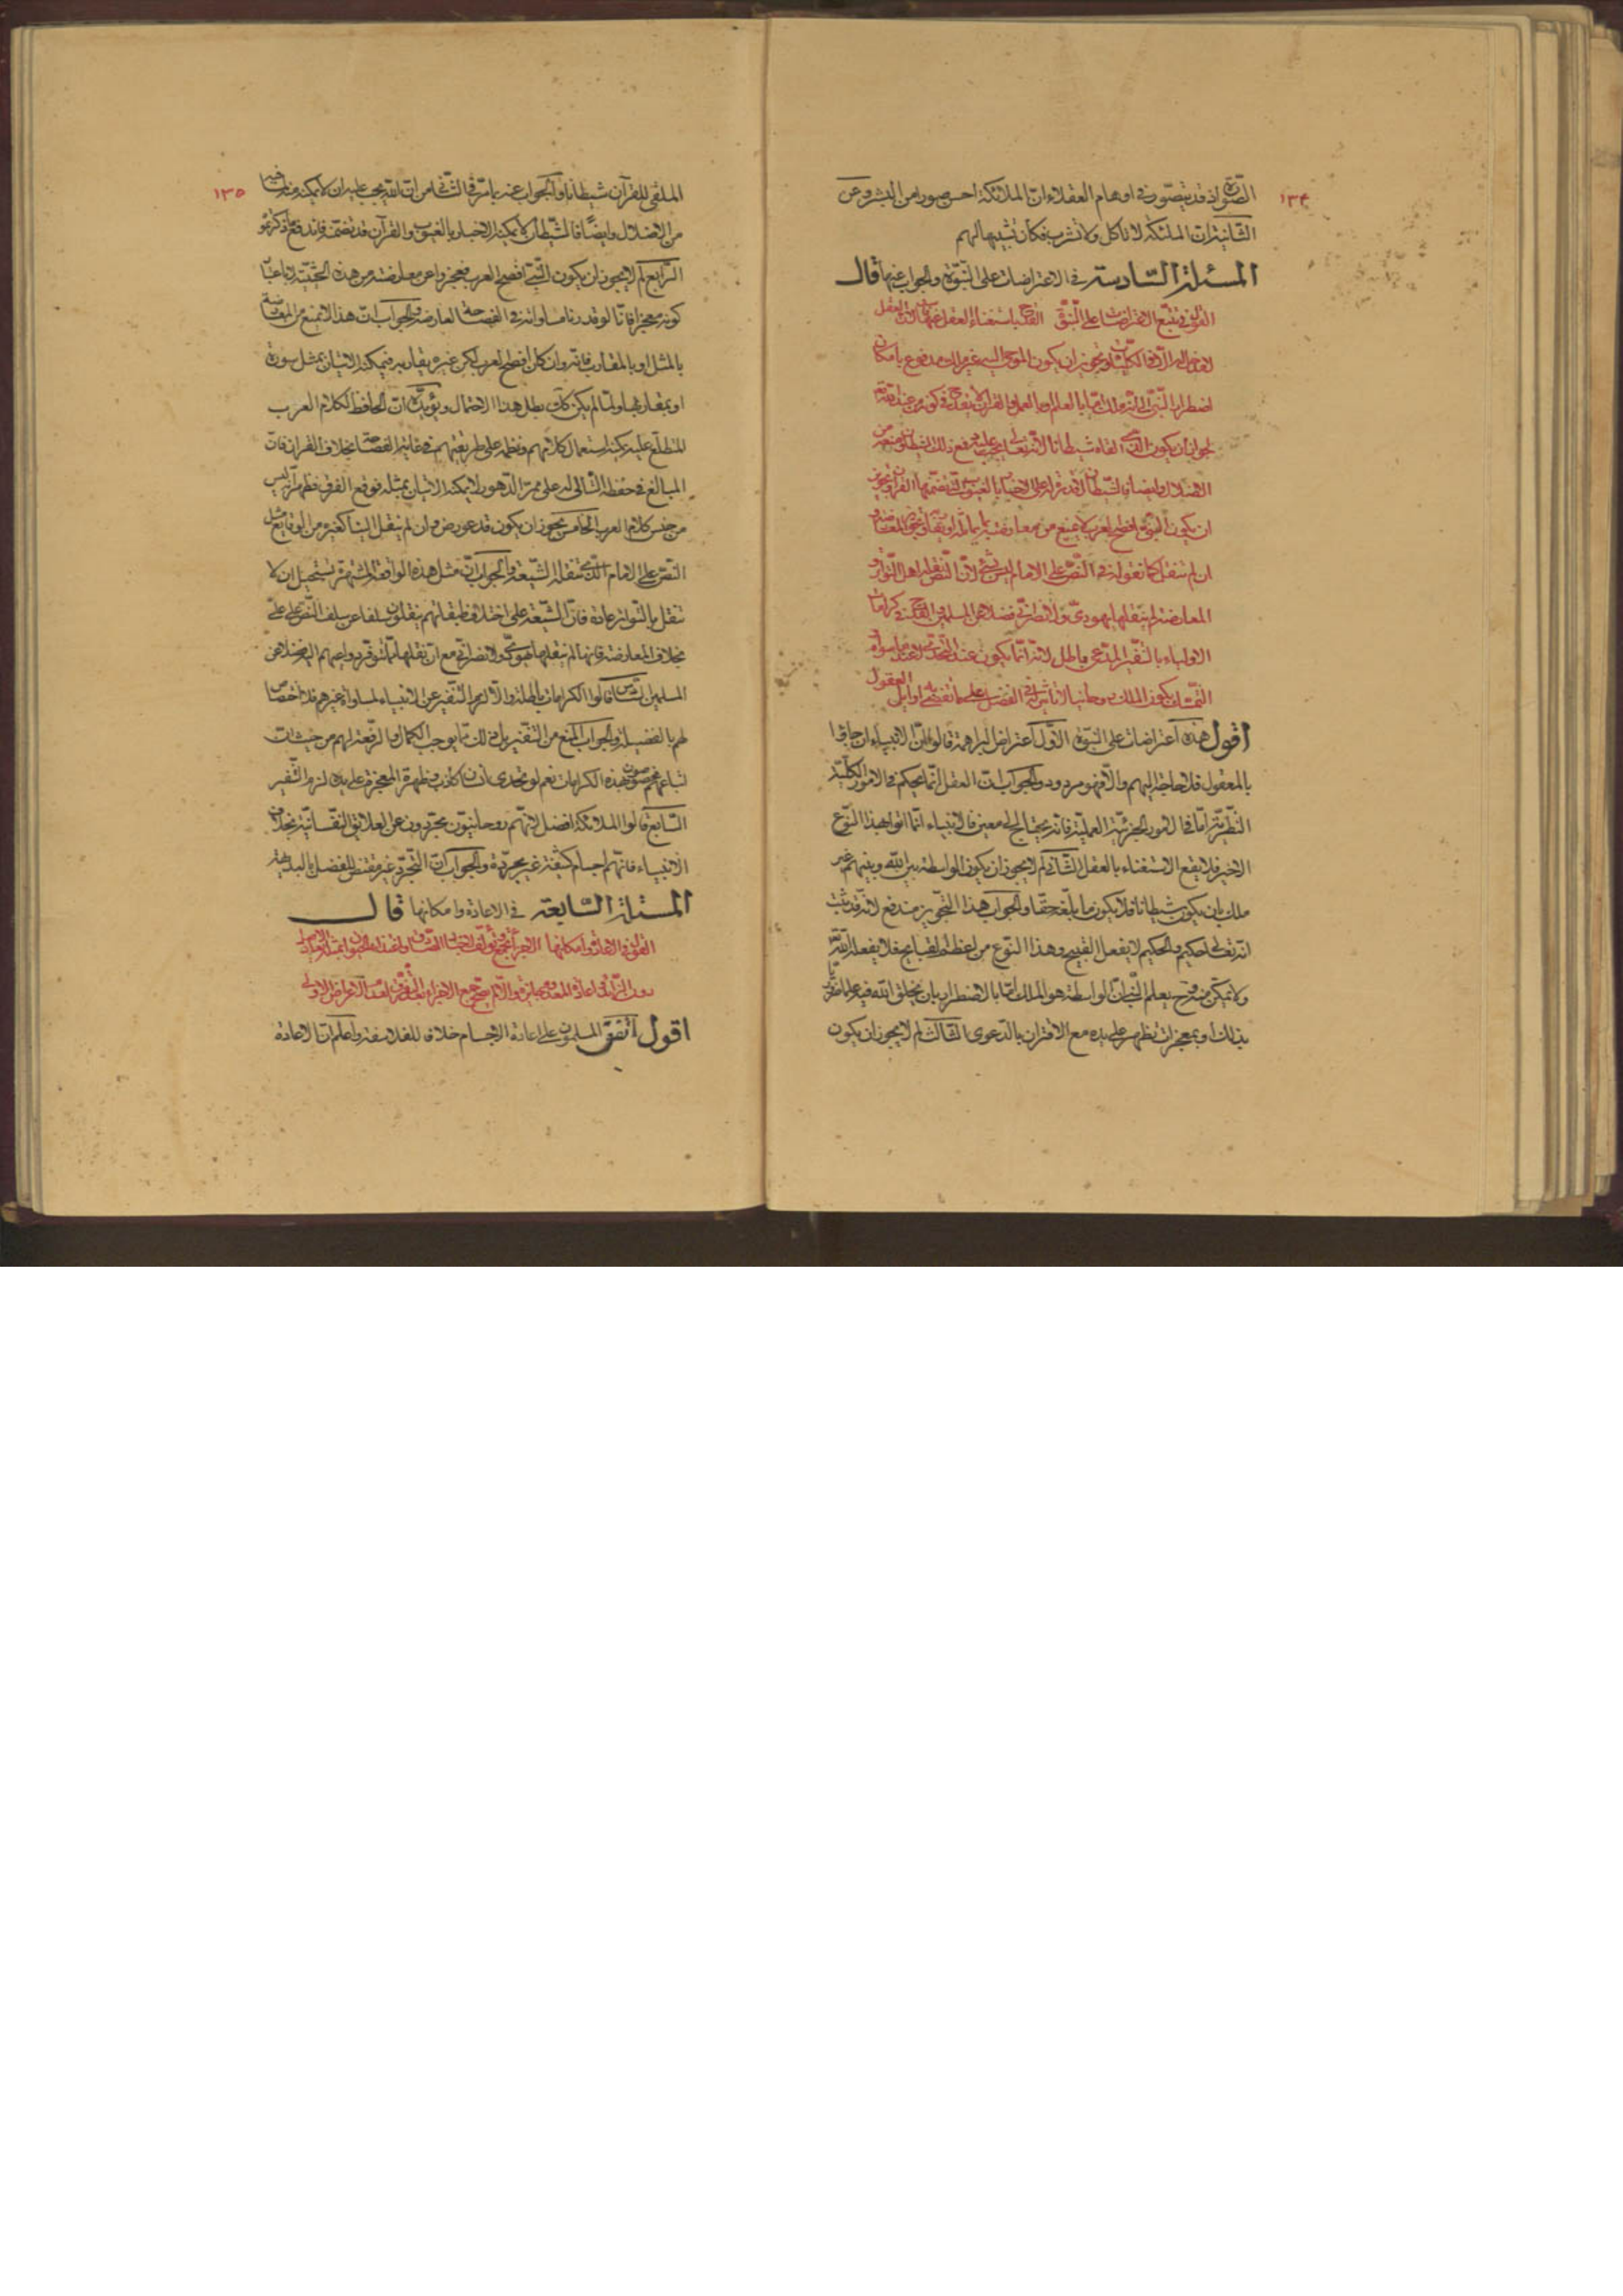 ١٣٤
الصورة اذ قد يتصور في اوهام العقلاء ان الملائكة احسن صورا من البشر وعن
الثانية ان الملئكة لا تأكل ولا تشرب فكان تشبيها لهم
المسئلة السّادسة في الاعتراضات على النبوّة والجواب عنها قال
القول في تتبع الاعتراضات على النبوّة القدح باستغناء العقل عنها لان العقل
لا مدخل له الا في الكليات وتجويز ان يكون الموحى اليه غير ملك مدفوع بامكان
اضطرار النبي الى انه ملك اما بالعلم واما بالعمل والقرآن لا يقدح في كونه من عند الله
جواز ان يكون الذي القاه شيطانا لانه تعالى يجب عليه دفع ذلك الشيطان ومنعه من
الاضلال وايضا فالشيطان لا قدرة له على الاخبار بالغيوب التي تضمنها القرآن وتجويز
ان يكون النبي افصح العرب لا يمنع من معارضته بما يماثله او يقاربه وتجويز المعارضة و
ان لم تنقل كما نقوله في النصّ على الامام ليس بشيء لانّ النّص نقله اهل التواتر و
المعارضة لم ينقلها يهوديّ ولا نصرانيّ فضلا عن المسلمين والقدح في كرامات
الاولياء بالتنفير المدعى باطل لانه انما يكون عند التحدي لا عند ما سواه
العقول
اقول هذه اعتراضات على النبوة الاوّل اعتراض البراهمة قالوا لانّ الانبياء ان جاؤا
بالمعقول فلا حاجة اليهم والّا فهو مردود والجواب انّ العقل انّما يحكم في الامور الكلّيّة
النّظريّة امّا في الامور الجزئيّة العمليّة فانّه يحتاج الى معين فالانبياء انّما اتوا بهذا النّوع
الاخير فلا يقع الاستغناء بالعقل الثّاني لم لا يجوز ان يكون الواسطة بين الله وبينهم غير
ملك بان يكون شيطانا فلا يكون ما بلّغه حقّا والجواب هذا التّجويز مندفع لانّه قد ثبت
انه تعالى حكيم والحكيم لا يفعل القبيح وهذا النّوع من اعظم القبايح فلا يفعله الله
ولا يمكّن منه وح يعلم النّبيّ انّ الواسطة هو الملك امّا بالاضطرار بان يخلق الله فيه علما ضروريّا
بذلك او بمعجزات تظهر على يده مع الاقتران بالدّعوى الثّالث لم لا يجوز ان يكون
١٣٥
الملقى للقرآن شيطانا والجواب عنه ما مرّ في الثّاني من انّ الله يجب عليه ان لا يمكّنه
من الاضلال وايضًا فالشّيطان لا يمكنه الاخبار بالغيوب والقرآن قد تضمّنه فاندفع ما ذكرتموه
الرّابع لم لا يجوز ان يكون النّبيّ افصح العرب فعجزوا عن معارضته من هذه الحيثيّة لا باعتبار
كونه معجزا فانّا لو قدرنا مساواته في الفصاحة لعارضه والجواب انّ هذا لا يمنع من المعارضة
بالمثل او بالمقارب فانّه وان كان افصح العرب لكن غيره يقاربه فيمكنه الاتيان بمثل سورة
او بمقاربها ولمّا لم يكن كذلك بطل هذا الاحتمال ويؤيّده انّ الحافظ لكلام العرب
المطّلع عليه يمكنه استعمال كلامهم ونظمه على طريقتهم في غاية الفصاحة بخلاف القرآن فانّ
المبالغ في حفظه التّالي له على ممرّ الدّهور لا يمكنه الاتيان بمثله فوقع الفرق فظهر انّه ليس
من جنس كلام العرب الخامس يجوز ان يكون قد عورض وان لم ينقل الينا كغيره من الوقايع مثل
النّصّ على الامام الّذي تنقله الشّيعة والجواب انّ مثل هذه الواقعة المشتهرة يستحيل ان لا
تنقل بالتّواتر عادة فانّ الشّيعة على اختلاف طبقاتهم ينقلون سلفا عن سلف النّصّ على عليّ
بخلاف المعارضة فانها لم ينقلها يهوديّ ولا نصرانيّ مع انّ نقلها ممّا تتوفّر دواعيهم اليه فضلا عن
المسلمين السّادس قالوا الكرامات باطلة والّا لزم التنفير عن الانبياء لمساواة غيرهم فلا اختصاص
لهم بالفضيلة والجواب المنع من التّنفير بل ذلك ممّا يوجب الكمال والرّفعة لهم من حيث انّ
اتباعهم يحصل لهم هذه الكرامات نعم لو تحدى انسان كاذب وظهرت المعجزة على يده لزم التّنفير
السّابع قالوا الملائكة افضل لانّهم روحانيّون مجرّدون عن العلايق النّفسانيّة بخلاف
الانبياء فانّهم اجسام كثيفة غير مجرّدة والجواب انّ التّجرّد غير مقتض للفضل بالبداهة
المسئلة السّابعة في الاعادة وامكانها قال
القول في الاعادة وامكانها
اقول اتّفق المسلمون على اعادة الاجسام خلافا للفلاسفة واعلم انّ الاعادة